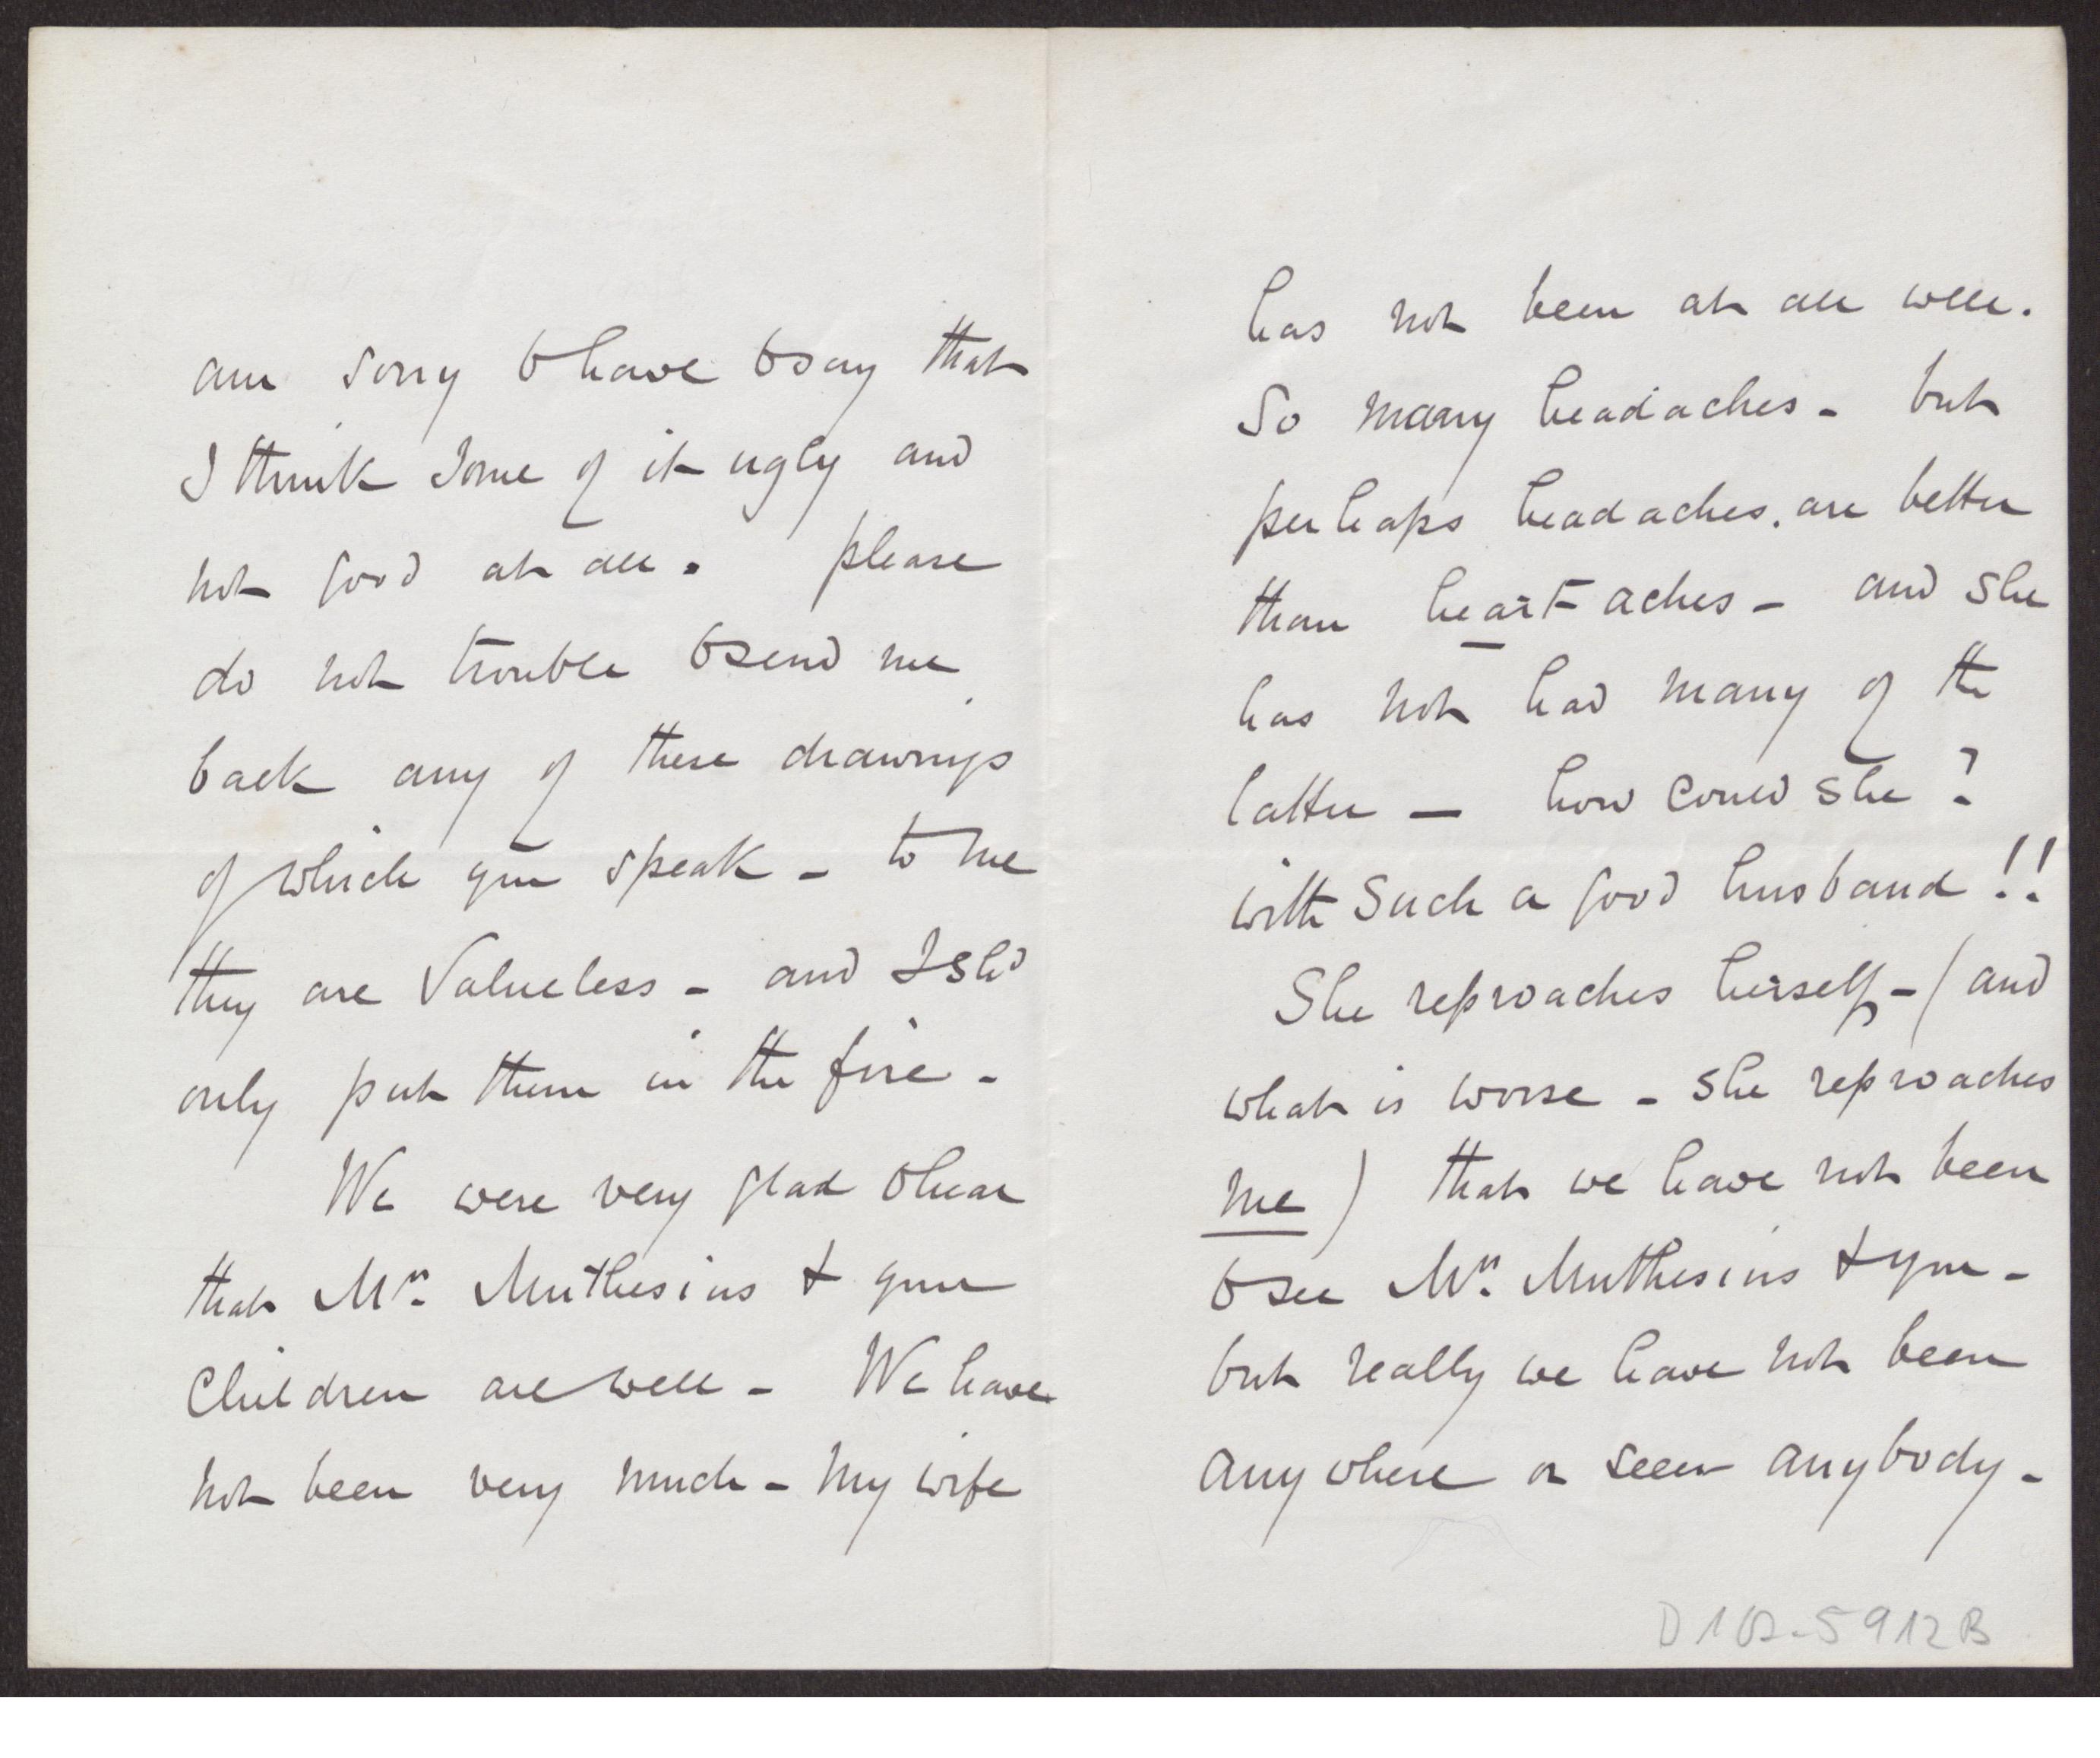 am sorry to have to say that
I think some of it ugly and
not good at all. please
do not trouble to send me
back any of these drawings
of which you speak - to me
they are valueless - and I shd
only put them in the fire -
We were very glad to hear
that Mrs. Muthesius & your
Children are well - We have
not been very much - my wife
has not been at all well.
So many headaches - but
perhaps headaches are better
than heart aches - and she
has not had many of the
latter - how could she ?
with such a good husband !!
She reproaches herself - ( and
what is worse - she reproaches
me ) that we have not been
to see Mrs. Muthesius & you -
but really we have not been
anywhere or seen anybody -
D 102-5912B